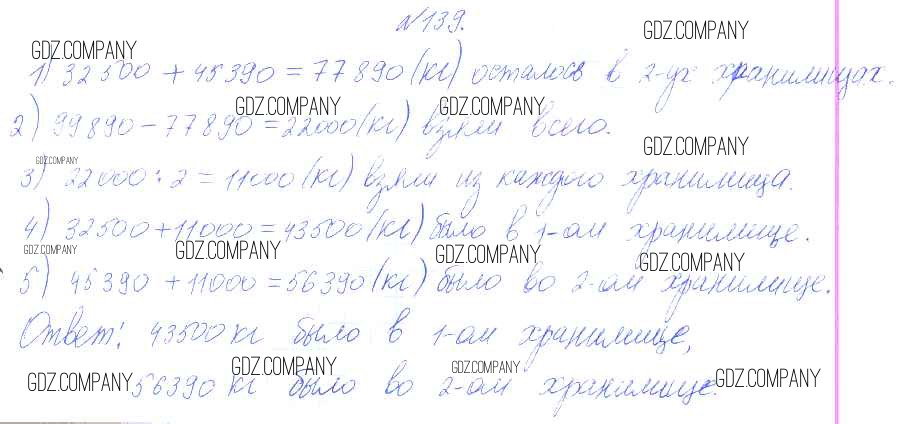 №139.
GDZ.COMPANY GDZ.COMPANY
1) 32500 + 45390 = 77890 (кг) осталось в 2-ух хранилищах.
GDZ.COMPANY GDZ.COMPANY
2) 99890 - 77890 = 22000 (кг) взяли всего.
GDZ.COMPANY GDZ.COMPANY
3) 22000 : 2 = 11000 (кг) взяли из каждого хранилища.
4) 32500 + 11000 = 43500 (кг) было в 1-ом хранилище.
GDZ.COMPANY GDZ.COMPANY GDZ.COMPANY GDZ.COMPANY
5) 45390 + 11000 = 56390 (кг) было во 2-ом хранилище.
Ответ: 43500 кг было в 1-ом хранилище,
GDZ.COMPANY GDZ.COMPANY GDZ.COMPANY GDZ.COMPANY
56390 кг было во 2-ом хранилище.